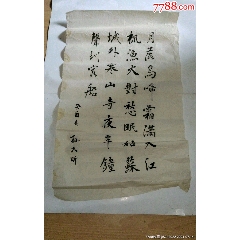 7788.com
月落烏啼霜滿天江
楓漁火對愁眠姑蘇
城外寒山寺夜半鐘
聲到客船